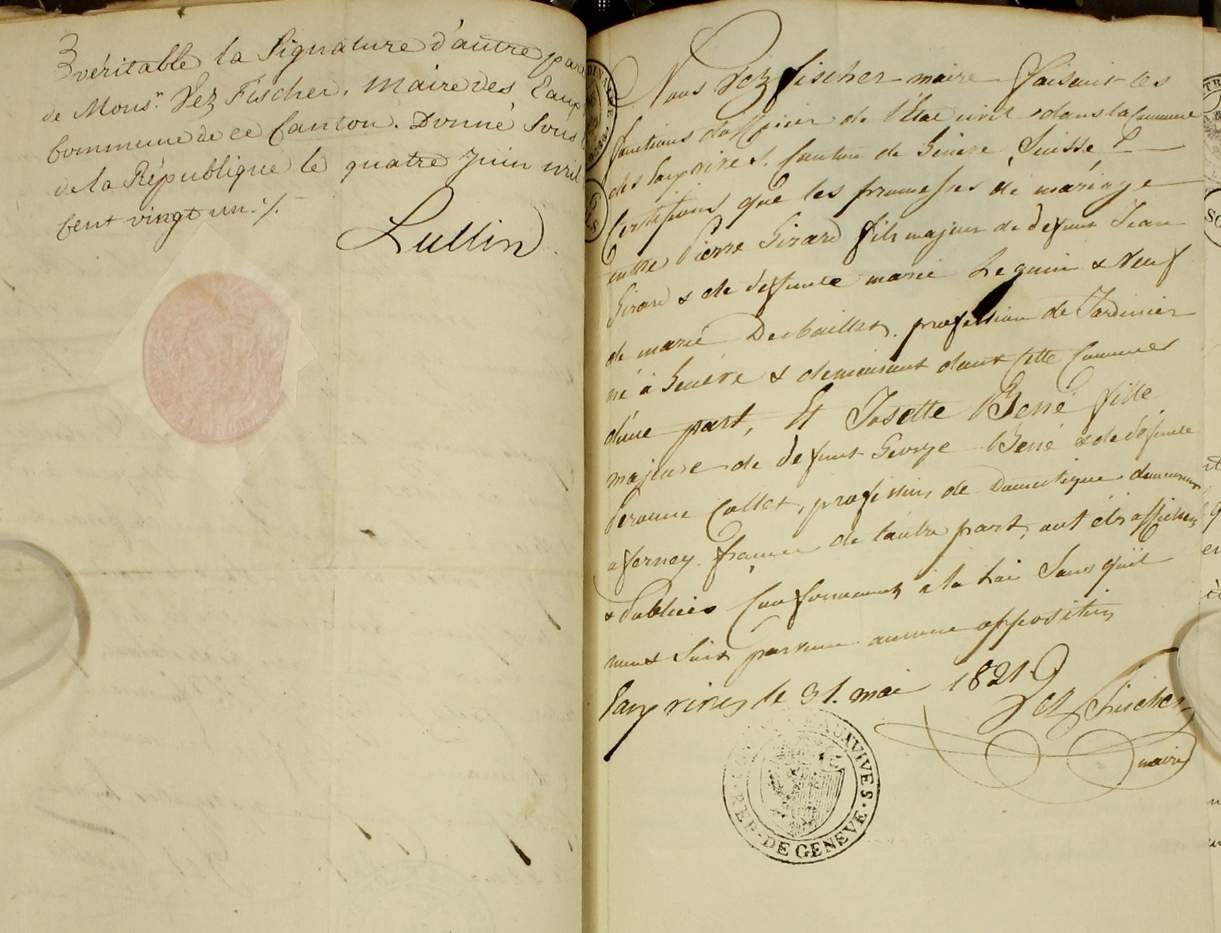 véritable la Signature d'autre part
de Monsr. Vez Fischer, Maire des Eaux
Commune de ce Canton. Donné sous
de la République le quatre Juin mil
cent vingt un ./.
Lullin
Nous Vez Fischer maire faisant les
fonctions d'officier de l'Etat civil dans la Commune
des Eaux vives, Canton de Genève, Suisse
Certifions que les promesses de mariage
entre Pierre Girard fils majeur de defunt Jean
Girard & de deffunte marie Lequin & veuf
de marie Desbaillets, profession de Jardinier
né à Genève & demeurant dans cette Commune
d'une part, Et Josette Béné fille
majeure de defunt George Béné & de défunte
Péronne Collet, profession de Domestique demeurant
a fernex france de l'autre part, ont étés affichées
& publiées Conformement a la Loi sans qu'il
nous soit parvenu aucune opposition
Eaux vives le 31. mai 1821
Vez Fischer
maire
EAUXVIVES.
REP. DE GENEVE